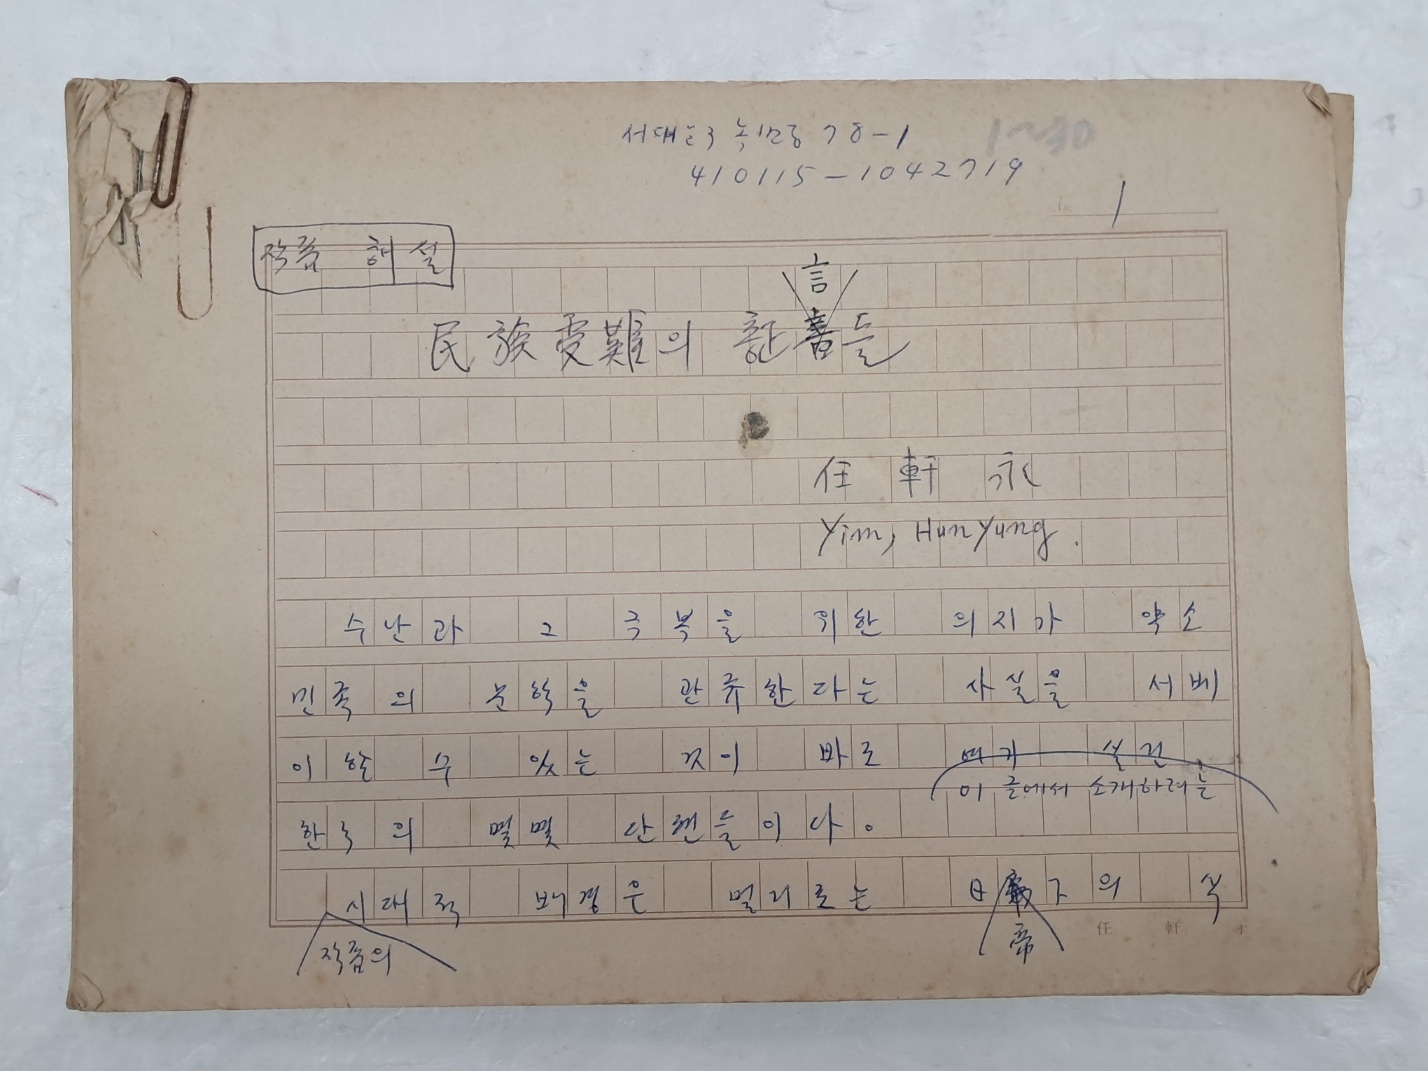 서대문구 녹번동 78-1
1~30
410115-1042719
1
작품 해설
言
民族受難의 証書들
任軒永
Yim, Hunyung.
수난과 그 극복을 위한 의지가 약소
민족의 문학을 관류한다는 사실을 서베
이할 수 있는 것이 바로 여기 실린
이 글에서 소개하려는
한국의 몇몇 단편들이다。
시대적 배경은 멀리로는 日 下의 식
작품의
帝
任 軒